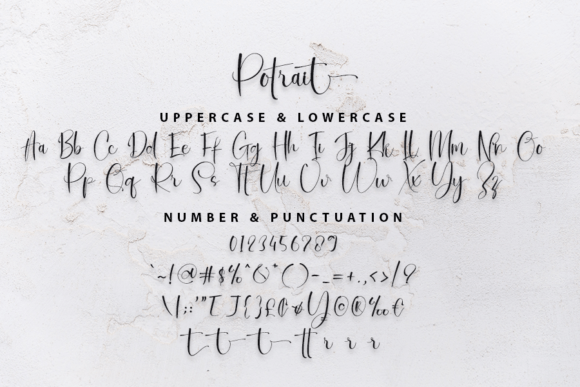 Potrait
UPPERCASE & LOWERCASE
Aa Bb Cc Dd Ee Ff Gg Hh Ii Jj Kk Ll Mm Nn Oo
Pp Qq Rr Ss Tt Uu Vv Ww Xx Yy Zz
NUMBER & PUNCTUATION
0123456789
`~!@#$%^&*()-_=+.,<>/?
\|;:'"[]{}£¢¤¥©®‰€
t t t tt r r r